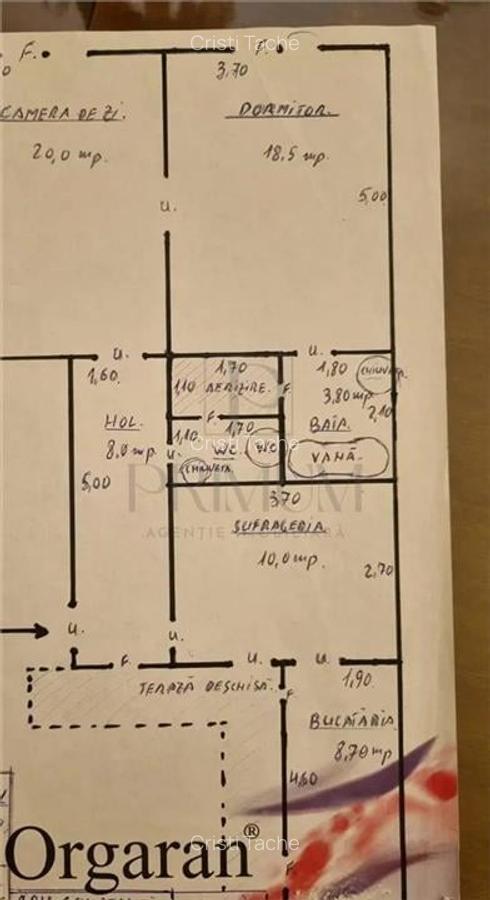 Cristi Tache
F.
F.
0
3,70
CAMERA DE ZI.
DORMITOR.
20,0 mp.
18,5 mp.
5,00
U.
U.
U.
1,60
1,70
1,80
CHIUVETA.
1,10 AERIZIRE.
F.
3,80 mp
2,10
HOL.
F.
1,70
BAIA.
8,0 mp.
1,10
Cristi Tache
U.
WC.
WC
VANĂ.
CHIUVETA.
5,00
PRIMUM
3,70
AGENȚIE IMOBILIARĂ
SUFRAGERIA
10,0 mp.
2,70
U.
U.
F.
U.
U.
TERAZĂ DESCHISĂ.
F.
1,90
BUCATĂRIA
8,70 mp
4,60
Orgaran®
Cristi Tache
F.